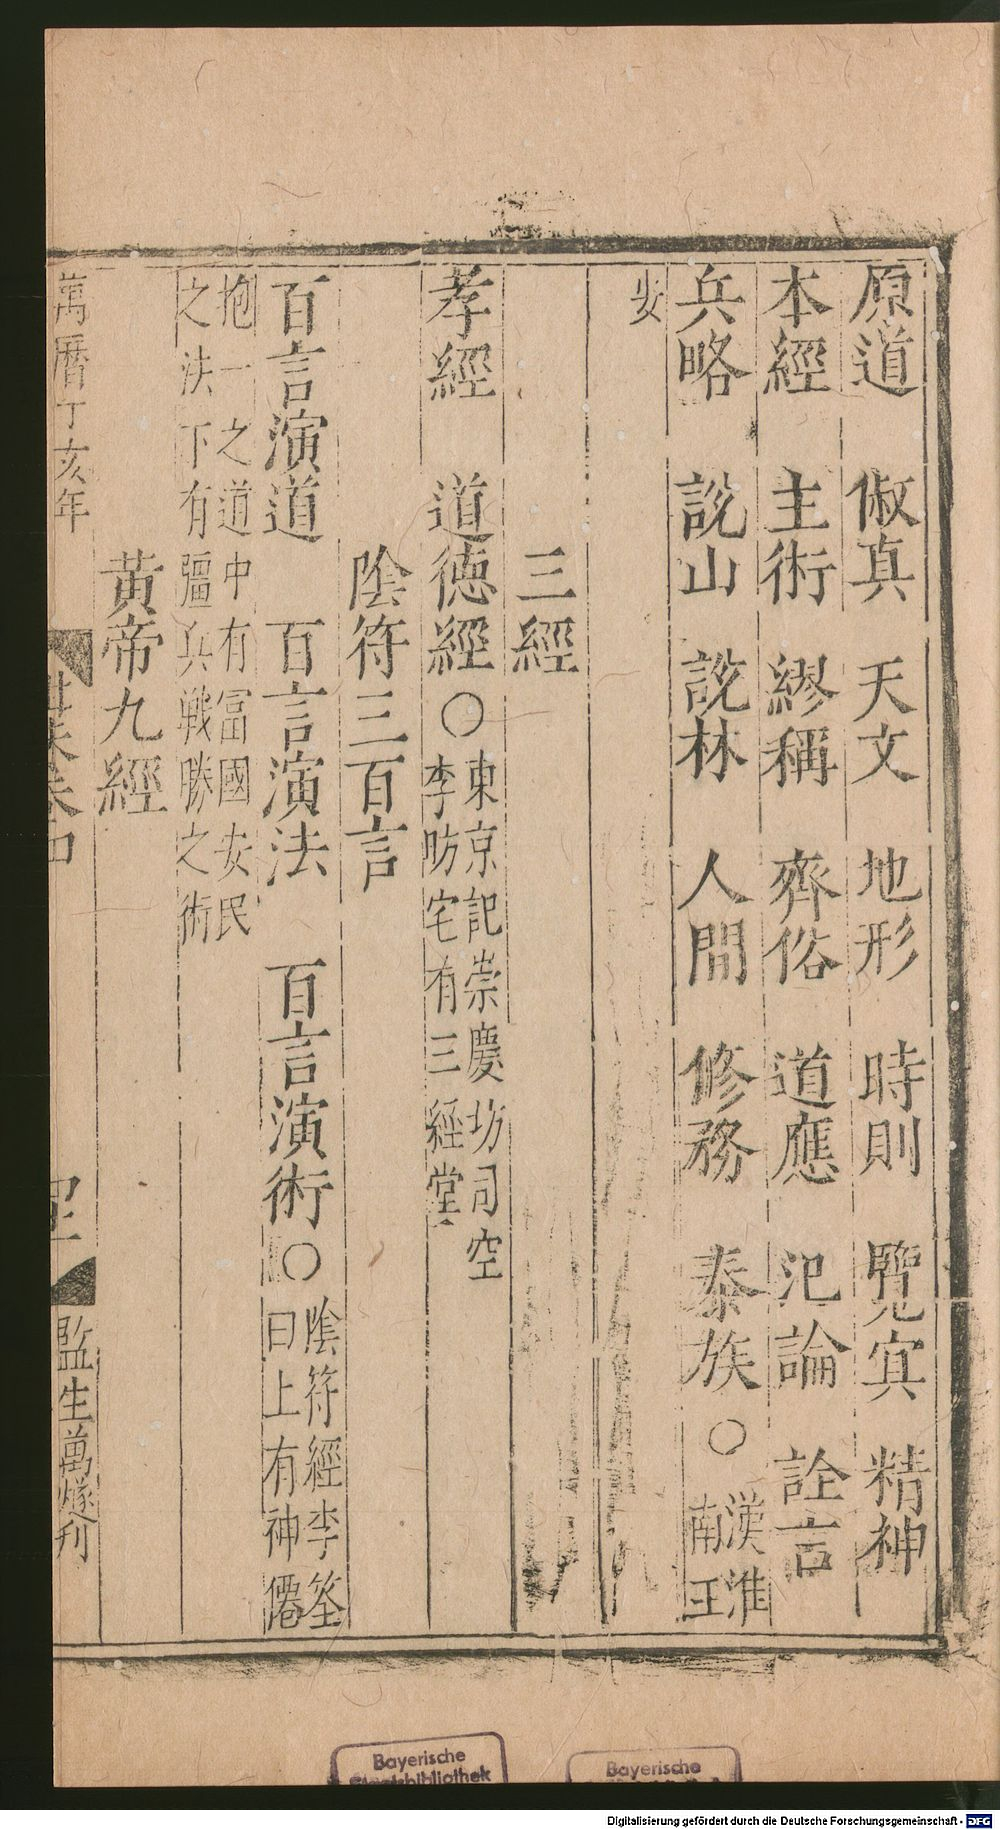 原道　俶真　天文　地形　時則　覽冥　精神
本經　主術　繆稱　齊俗　道應　氾論　詮言
兵略　說山　說林　人間　修務　泰族　○漢淮
南王
安
三經
孝經　道德經○東京記崇慶坊司空
李昉宅有三經堂
陰符三百言
百言演道　百言演法　百言演術○陰符經李筌
曰上有神僊
抱一之道中有冨國安民
之法下有彊兵戰勝之術
黃帝九經
萬曆丁亥年
監生萬燧刊
Bayerische
Staatsbibliothek
Bayerische
Digitalisierung gefördert durch die Deutsche Forschungsgemeinschaft - DFG